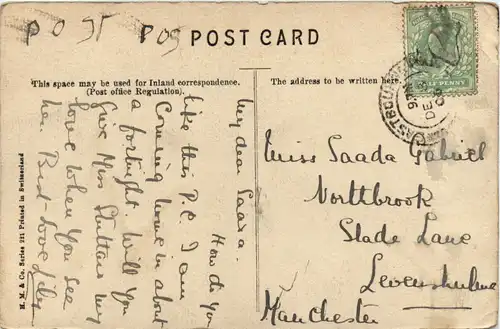 P O 95 P O S
POST CARD
This space may be used for Inland correspondence.
(Post office Regulation).
The address to be written here.
HALFPENNY
EASTBOURNE
DE
My dear Saada.
How do you
like this P.C. I am
Coming home in about
a fortnight. Will you
give Miss my
love when you see
her. Best love
Miss Saada Gabriel
Northbrook
Slade Lane
Levenshulme
Manchester
H. M. & Co. Series 221 Printed in Switzerland